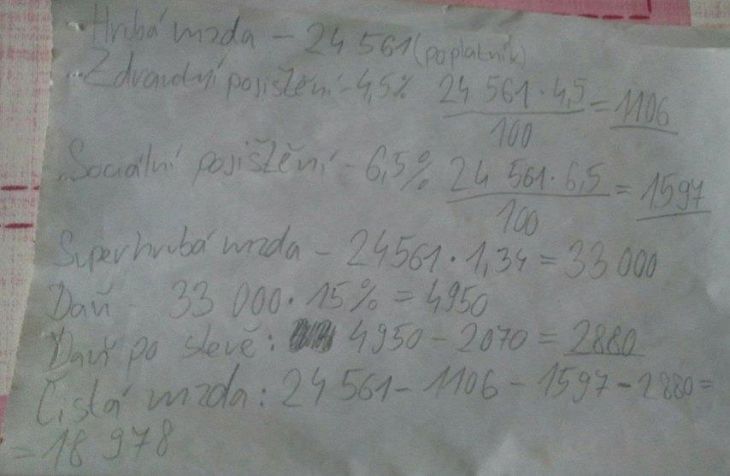 Hrubá mzda - 24 561 (poplatník)
Zdravotní pojištění - 4,5% 24 561 · 4,5 / 100 = 1106
Sociální pojištění - 6,5% 24 561 · 6,5 / 100 = 1597
Superhrubá mzda - 24561 · 1,34 = 33 000
Daň - 33 000 · 15% = 4950
Daň po slevě: 4950 - 2070 = 2880
Čistá mzda: 24 561 - 1106 - 1597 - 2880 =
= 18 978